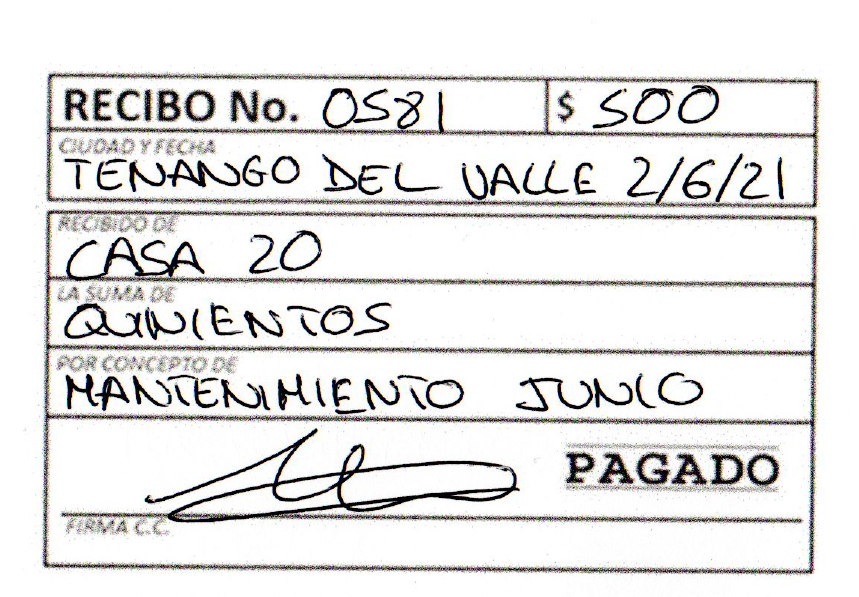 RECIBO No. 0581 $ 500
CIUDAD Y FECHA
TENANGO DEL VALLE 2/6/21
RECIBIDO DE
CASA 20
LA SUMA DE
QUINIENTOS
POR CONCEPTO DE
MANTENIMIENTO JUNIO
PAGADO
FIRMA C.C.